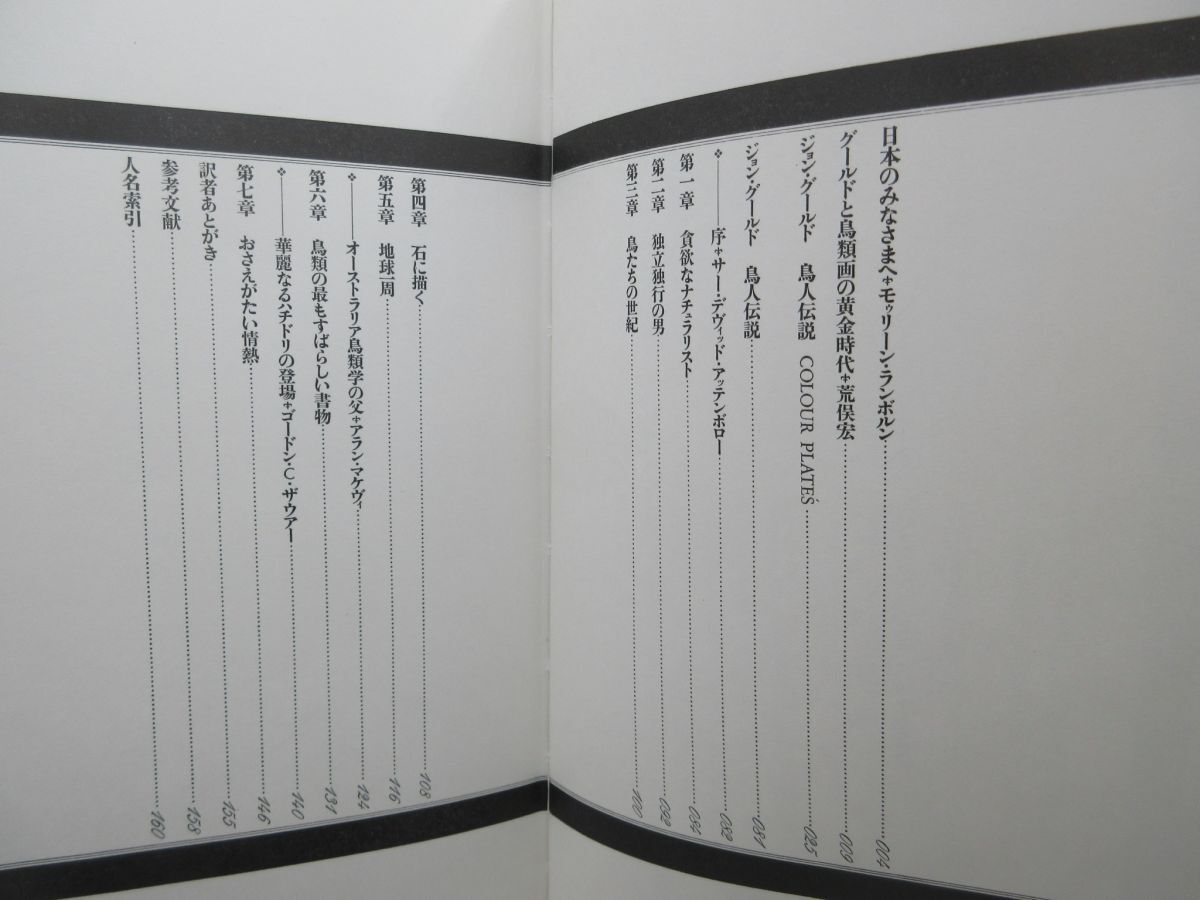 日本のみなさまへ✢モゥリーン・ランボルン……004
グールドと鳥類画の黄金時代✢荒俣宏……009
ジョン・グールド 鳥人伝説 COLOUR PLATES……025
ジョン・グールド 鳥人伝説……081
❖——序✢サー・デヴィッド・アッテンボロー……082
第一章 貪欲なナチュラリスト……084
第二章 独立独行の男……092
第三章 鳥たちの世紀……100
第四章 石に描く……108
第五章 地球一周……116
❖——オーストラリア鳥類学の父✢アラン・マケヴィ……124
第六章 鳥類の最もすばらしい書物……131
❖——華麗なるハチドリの登場✢ゴードン・C・ザウアー……140
第七章 おさえがたい情熱……146
訳者あとがき……155
参考文献……158
人名索引……160